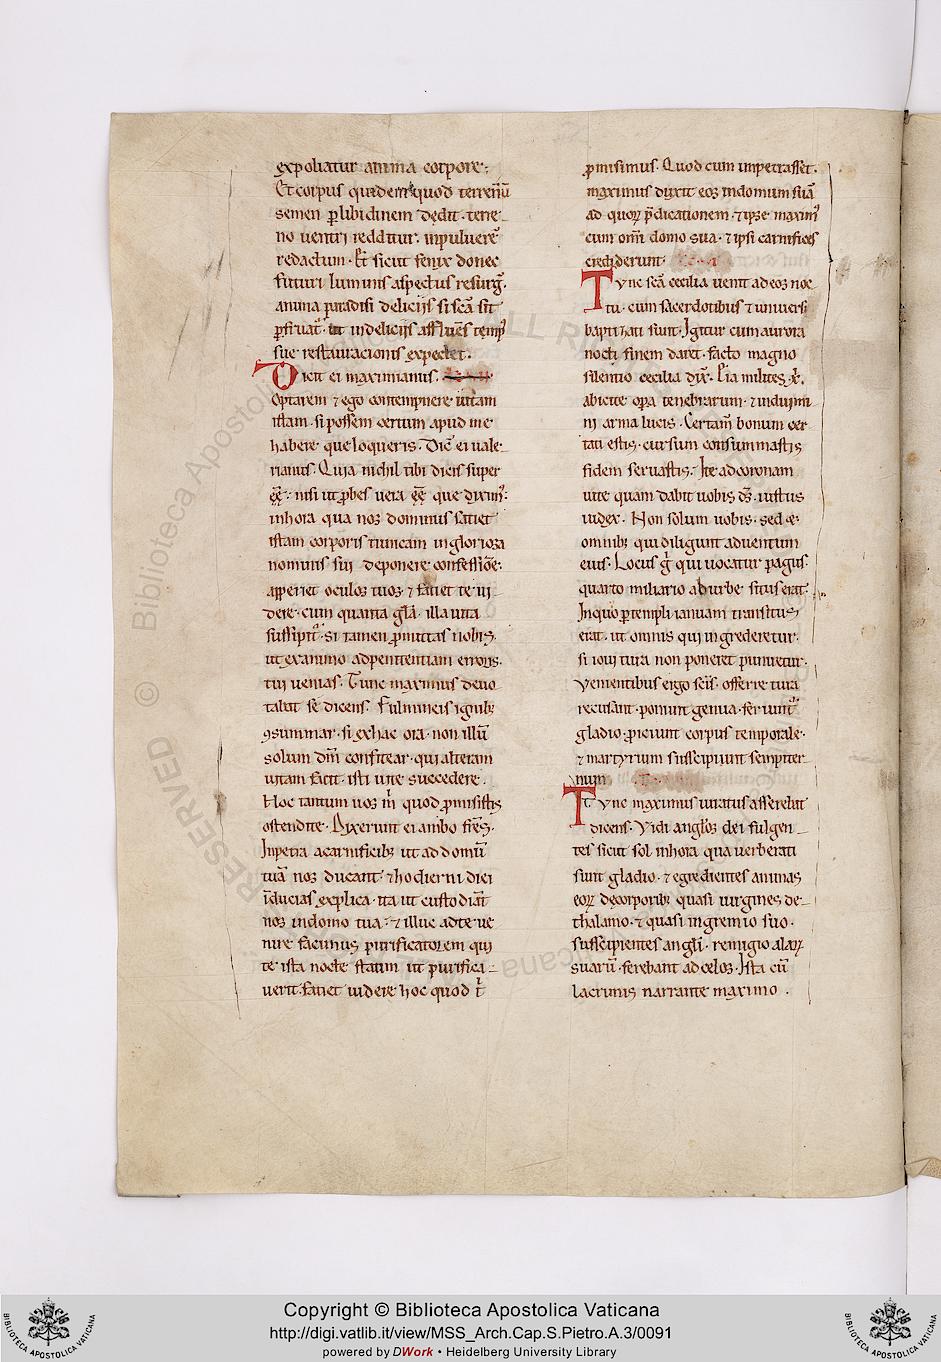 expoliatur anima corpore·
Et corpus quidem quod terrenū
semen ꝑ libidinem dędit· terre-
no ventri redditur· in puluerē
redactum· Et sicut fenix donec
futuri luminis aspectus resurg̃·
anima paradisi delicijs si sc̃a sit
ꝑfruat᷑· ut in delicijs affluēs temp᷒
sue restauracionis expectet·
Dicit ei maximianus·
Optarem ⁊ ego contempnere uitam
istam· si possem certum apud me
habere que loqueris· Dic̃ ei vale-
rianus· Quia nichil tibi dicis super
ee᷒· nisi ut ꝓbes vera ee᷒ que dixim᷒:
in hora qua nos dominus faciet
istam corporis tunicam in gloriosa
nominis sui deponere confessiōe·
apperiet oculos tuos· ⁊ faciet te ui
dere· cum quanta gl̃a· illa uita
suscipit᷑· si tamen ꝓmittas nobis·
ut ex animo ad penitentiam erroris·
tui uenias· Tunc maximus deuo
tabat se dicens· Fulmineis ignib;
ꝯsummar· si ex hac ora· non illū
solum dm̃ confitear· qui alteram
uitam facit· isti uite succedere·
Hoc tantum uos m̃ quod ꝓmisistis
ostendite· Dixerunt ei ambo fr̃es·
Inpetra a carnificib; ut ad domū
tuā nos ducant· ⁊ hodierni diei
īducias explica· ita ut custodiāt
nos in domo tua· ⁊ illuc ad te ue
nire facimus purificatorem qui
te ista nocte statim ut purifica-
uerit· faciet uidere hoc quod t̃
ꝓmisimus· Quod cum impetrasset·
maximus duxit eos in domum suā
ad quoꝝ p̃dicationem· ⁊ ipse maxim᷒
cum om̃i domo sua· ⁊ ipsi carnifices
crediderunt·
Tunc sc̃a cecilia uenit ad eos noc
tu· cum sacerdotibus ⁊ uniuersi
baptizati sunt· Igitur cum aurora
nocti finem daret· facto magno
silentio cecilia dix̃· Eia milites xp̄i·
abicite opa tenebrarum· ⁊ induimi
ni arma lucis· Certam̃ bonum cer
tati estis· cursum consummastis
fidem seruastis· Ite ad coronam
uite quam dabit uobis ds̃· iustus
iudex· Non solum uobis· sed ⁊
omnib; qui diligunt aduentum
eius· Locus g̃ qui uocatur pagus·
quarto miliario ab urbe situs erat·
In quo ꝑ templi ianuam transitus
erat· ut omnis qui ingrederetur·
si ioui tura non poneret puniretur·
Venientibus ergo sc̃is· offerre tura
recusānt· ponunt genua· feriunt᷑
gladio ꝓiciunt corpus temporale·
⁊ martyrum suscipiunt sempiter
num
Tunc maximus iuratus asserebat
dicens· Vidi angl̃os dei fulgen
tes sicut sol in hora qua uerberati
sunt gladio· ⁊ egredientes animas
eoꝝ de corporib; quasi uirgines de-
thalamo· ⁊ quasi in gremio suo·
suscipientes angl̃i· remigio alaꝝ
suarū· ferebant ad celos· Ista cū
lacrimis narrante maximo·
Copyright © Biblioteca Apostolica Vaticana
http://digi.vatlib.it/view/MSS_Arch.Cap.S.Pietro.A.3/0091
powered by DWork • Heidelberg University Library